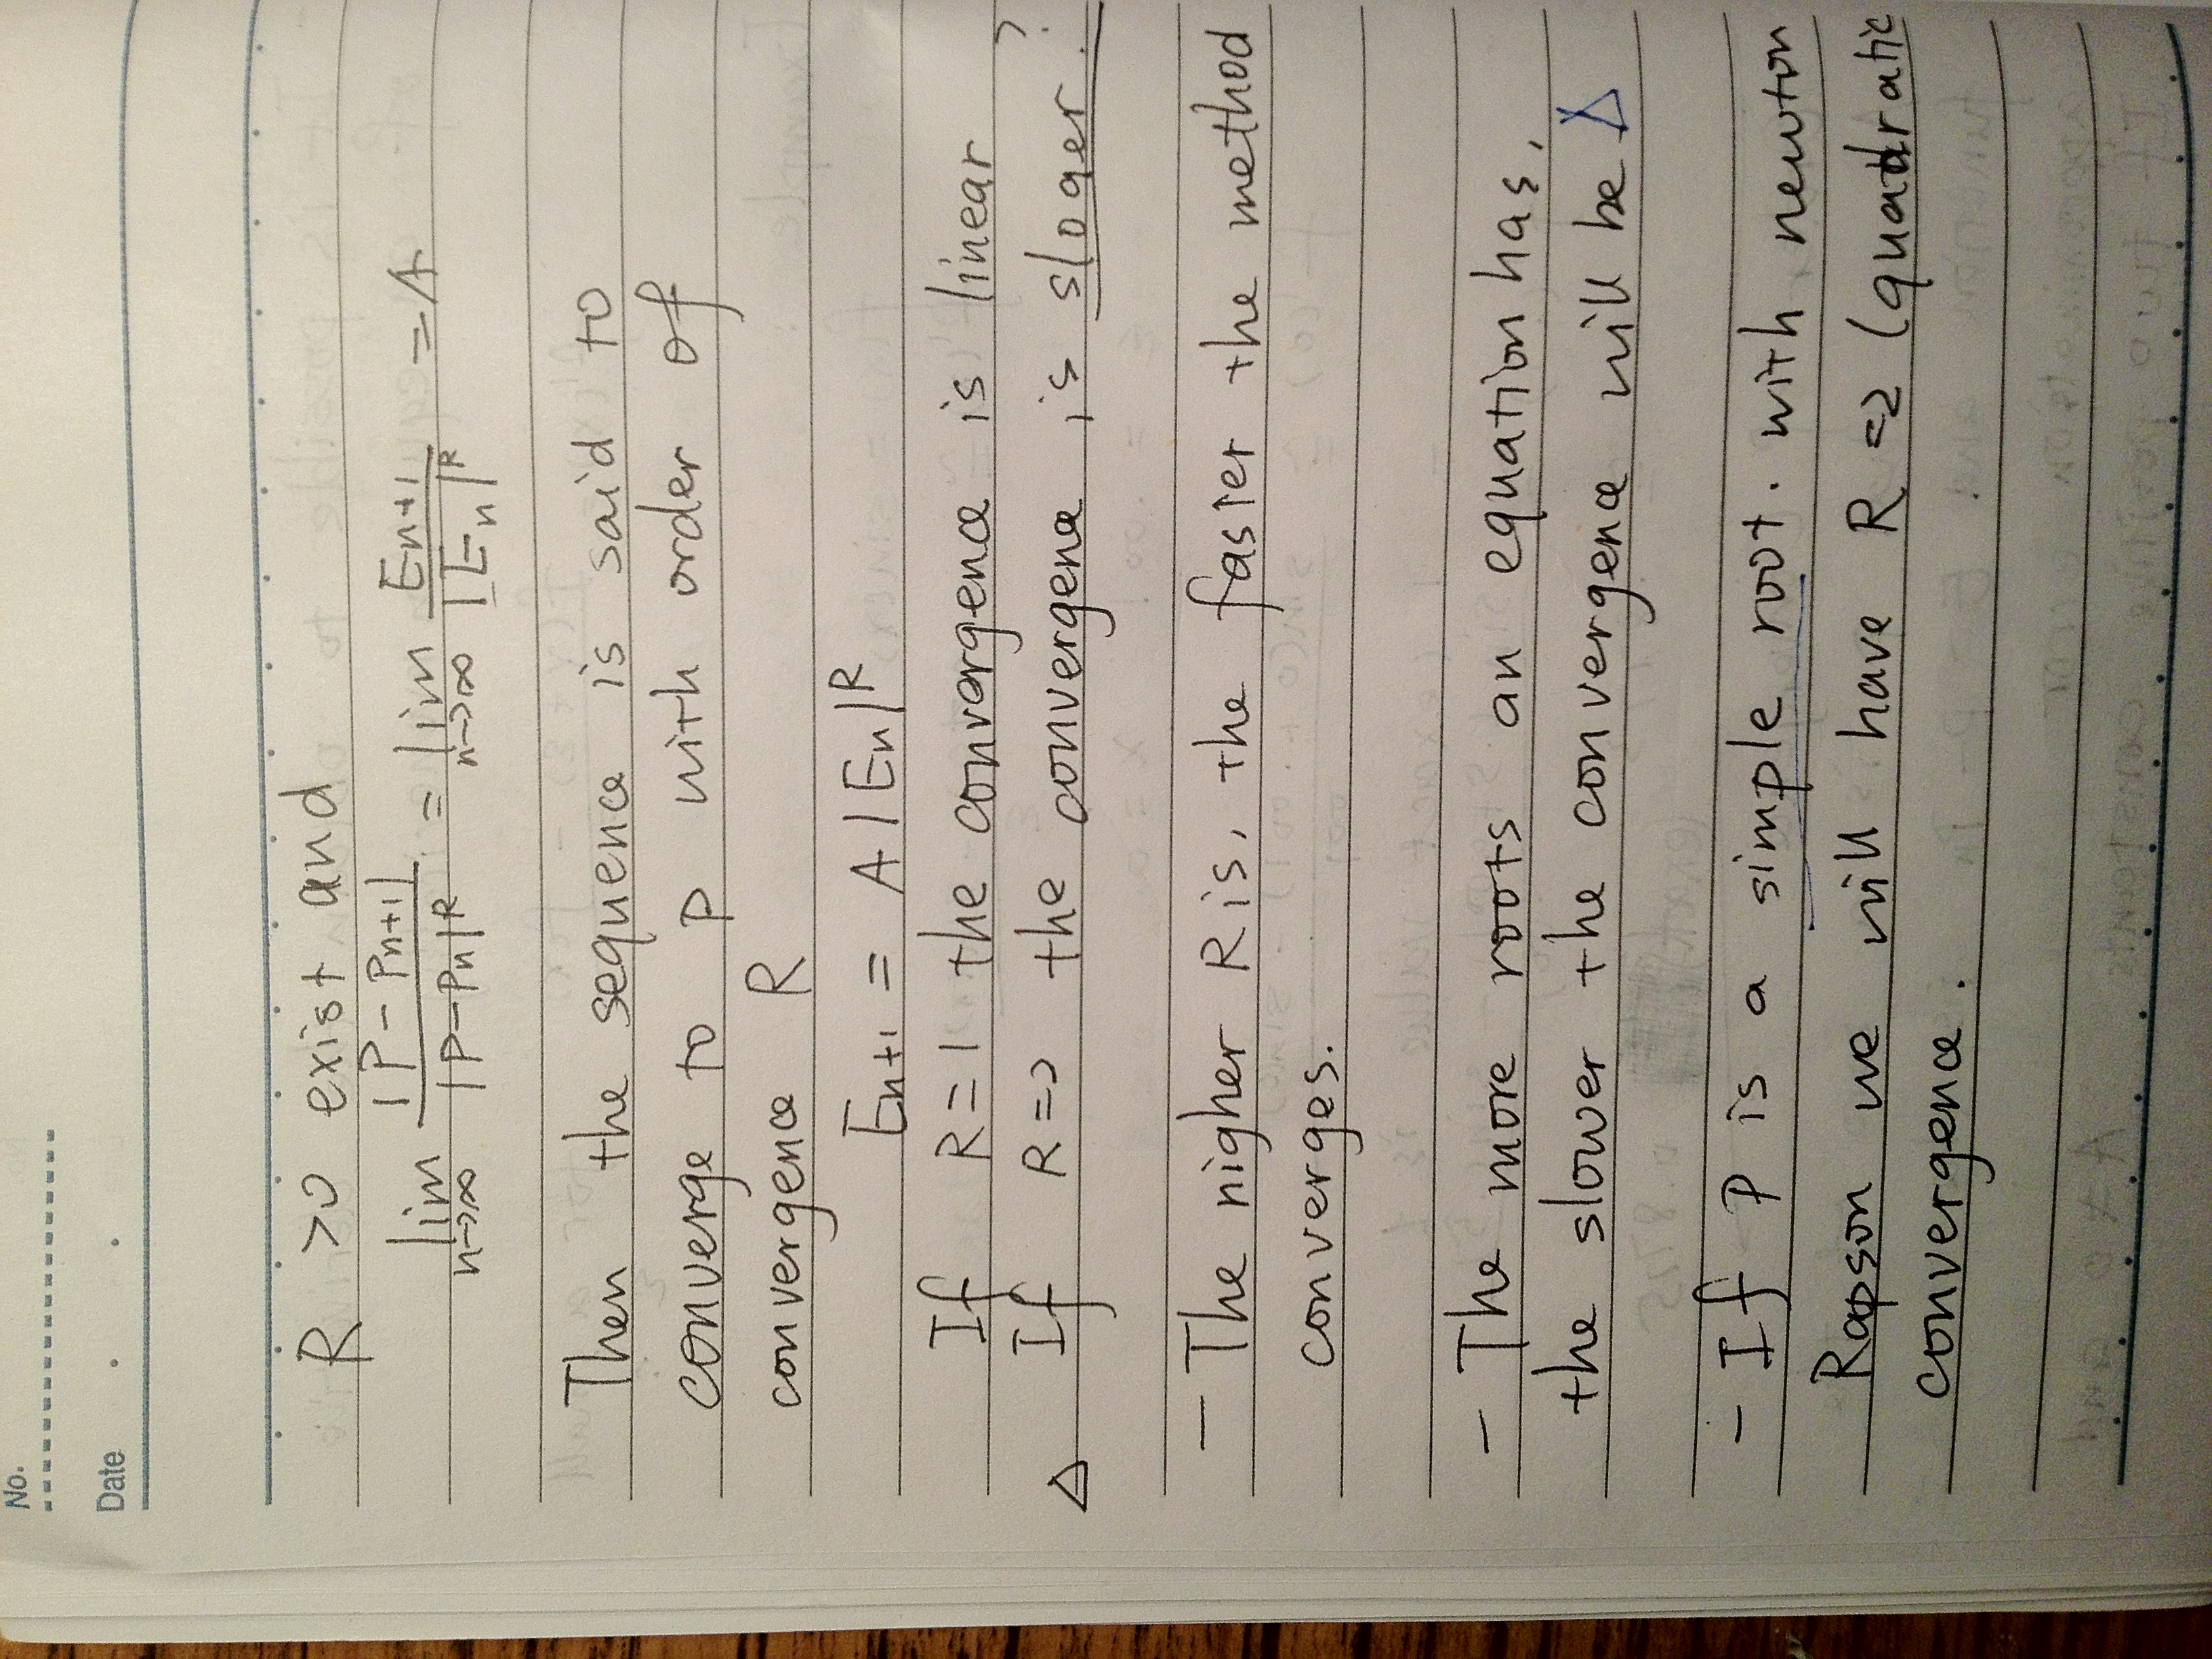 No.
Date
R >0 exist and
lim n→∞ |P-Pn+1| / |P-Pn|^R = lim n→∞ En+1 / |En|^R = A
Then the sequence is said to
converge to P with order of
convergence R
En+1 = A|En|^R
If R=1 the convergence is linear
△ If R=> the convergence is sloger?
- The nigher R is, the faster the method
converges.
- The more roots an equation has,
the slower the convergence will be △
- If P is a simple root. with newton
Rapson we will have R => (quadratic
convergence.